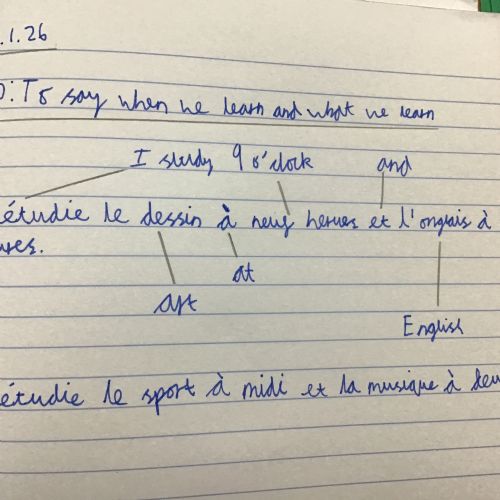 .1.26
O: To say when we learn and what we learn
I study 9 o'clock and
étudie le dessin à neuf herues et l'anglais à
ures.
at
art
English
étudie le sport à midi et la musique à deu